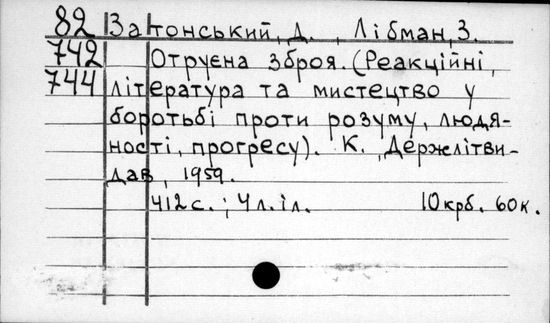 82 Затонський, Д. , Лібман, З.
742 Отруєна зброя. (Реакційні,
744 література та мистецтво у
боротьбі проти розуму, людя-
ності, прогресу). К. , Держлітви-
дав , 1959.
412 с. ; 4 л. іл. 10 крб. 60 к.